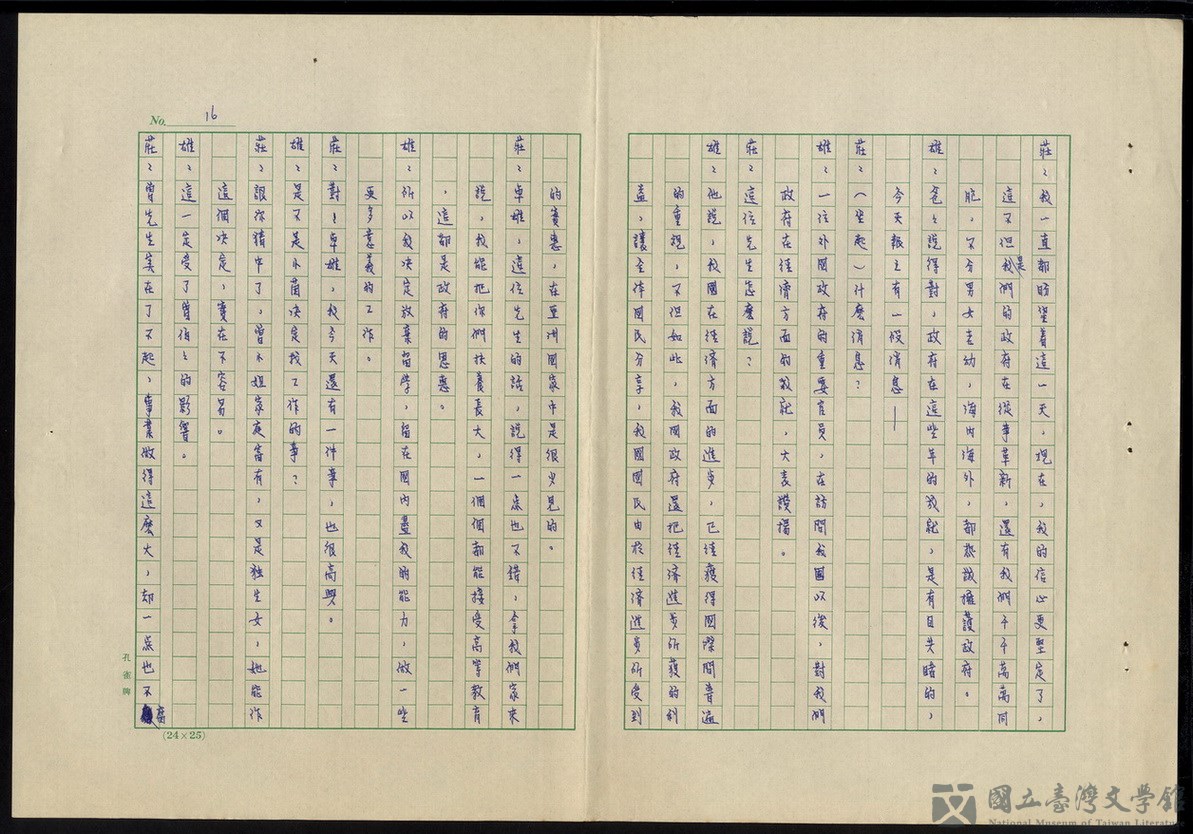 莊：我一直都盼望着這一天，現在，我的信心更堅定了，
這不但是我們的政府在從事革新，還有我們千千萬萬同
胞，不分男女主動，海內海外，都熱誠擁護政府。
雄：爸爸說得對，政府在這些年的成就，是有目共睹的，
今天報上有一段消息——
莊：（坐起）什麼消息？
雄：一位外國政府的重要官員，在訪問我國以後，對我們
政府在經濟方面的成就，大表讚揚。
莊：這位先生怎麼說？
雄：他說，我國在經濟方面的進步，已經獲得國際間普遍
的重視，不但如此，我國政府還把經濟進步所獲的利
益，讓全体國民分享，我國國民由於經濟進步所受到
No. 16
的實惠，在亞洲國家中是很少見的。
莊：卓雄，這位先生的話，說得一点也不錯，拿我們家來
說，我能把你們扶養長大，一個個都能接受高等教育
，這都是政府的恩惠。
雄：所以我決定放棄留學，留在國內盡我的能力，做一些
更多意義的工作。
莊：對！卓雄，我今天還有一件事，也很高興。
雄：是不是小茵決定找工作的事？
莊：讓你猜中了，曾小姐家庭富有，又是独生女，她能作
這個決定，實在不容易。
雄：這一定受了曾伯伯的影響。
莊：曾先生実在了不起，事業做得這麼大，却一点也不
孔雀牌
(24×25)
國立臺灣文學館
National Museum of Taiwan Literature